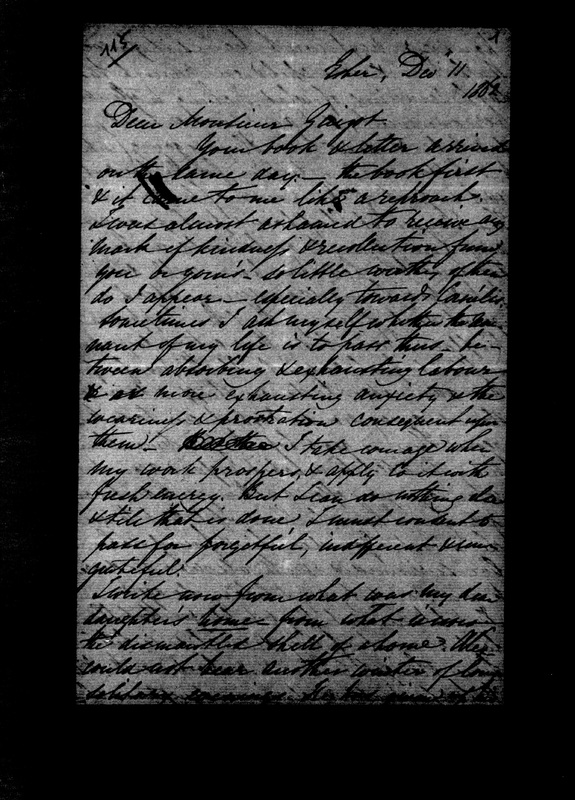 115
1
Esher, Dec 11
186
Dear Monsieur Guizot
Your book & letter arrived
on the same day - the book first
& it came to me like a reproach.
I was almost ashamed to receive any
mark of kindness & recollection from
you or yours - so little worthy of them
do I appear - especially towards
Sometimes I ask myself whether the rem
nant of my life is to pass thus - be-
tween absorbing & exhausting labour
& more exhausting anxiety & the
weariness & prostration consequent upon
them! I take courage when
my work prospers, & apply to it with
fresh energy. But I can do nothing else
& till that is done I must consent to
pass for forgetful, indifferent & un-
grateful.
I write now from what was my dear
daughter's home - from what is now
the dismantled shell of a home.
could not bear another winter of long
solitary evenings. He has given up